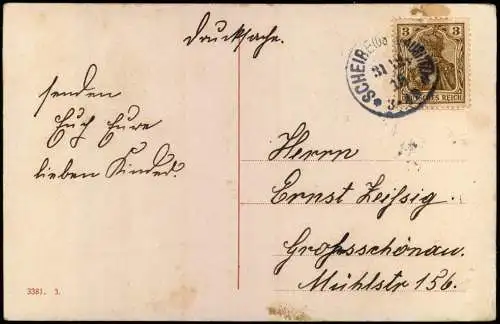 Drucksache.
senden
Euch Eure
lieben Kinder.
3381. 3.
3
3
REICH
SCHEIBE
31
Herrn
Ernst Zeißig.
Grossschönau.
Mühlstr 156.